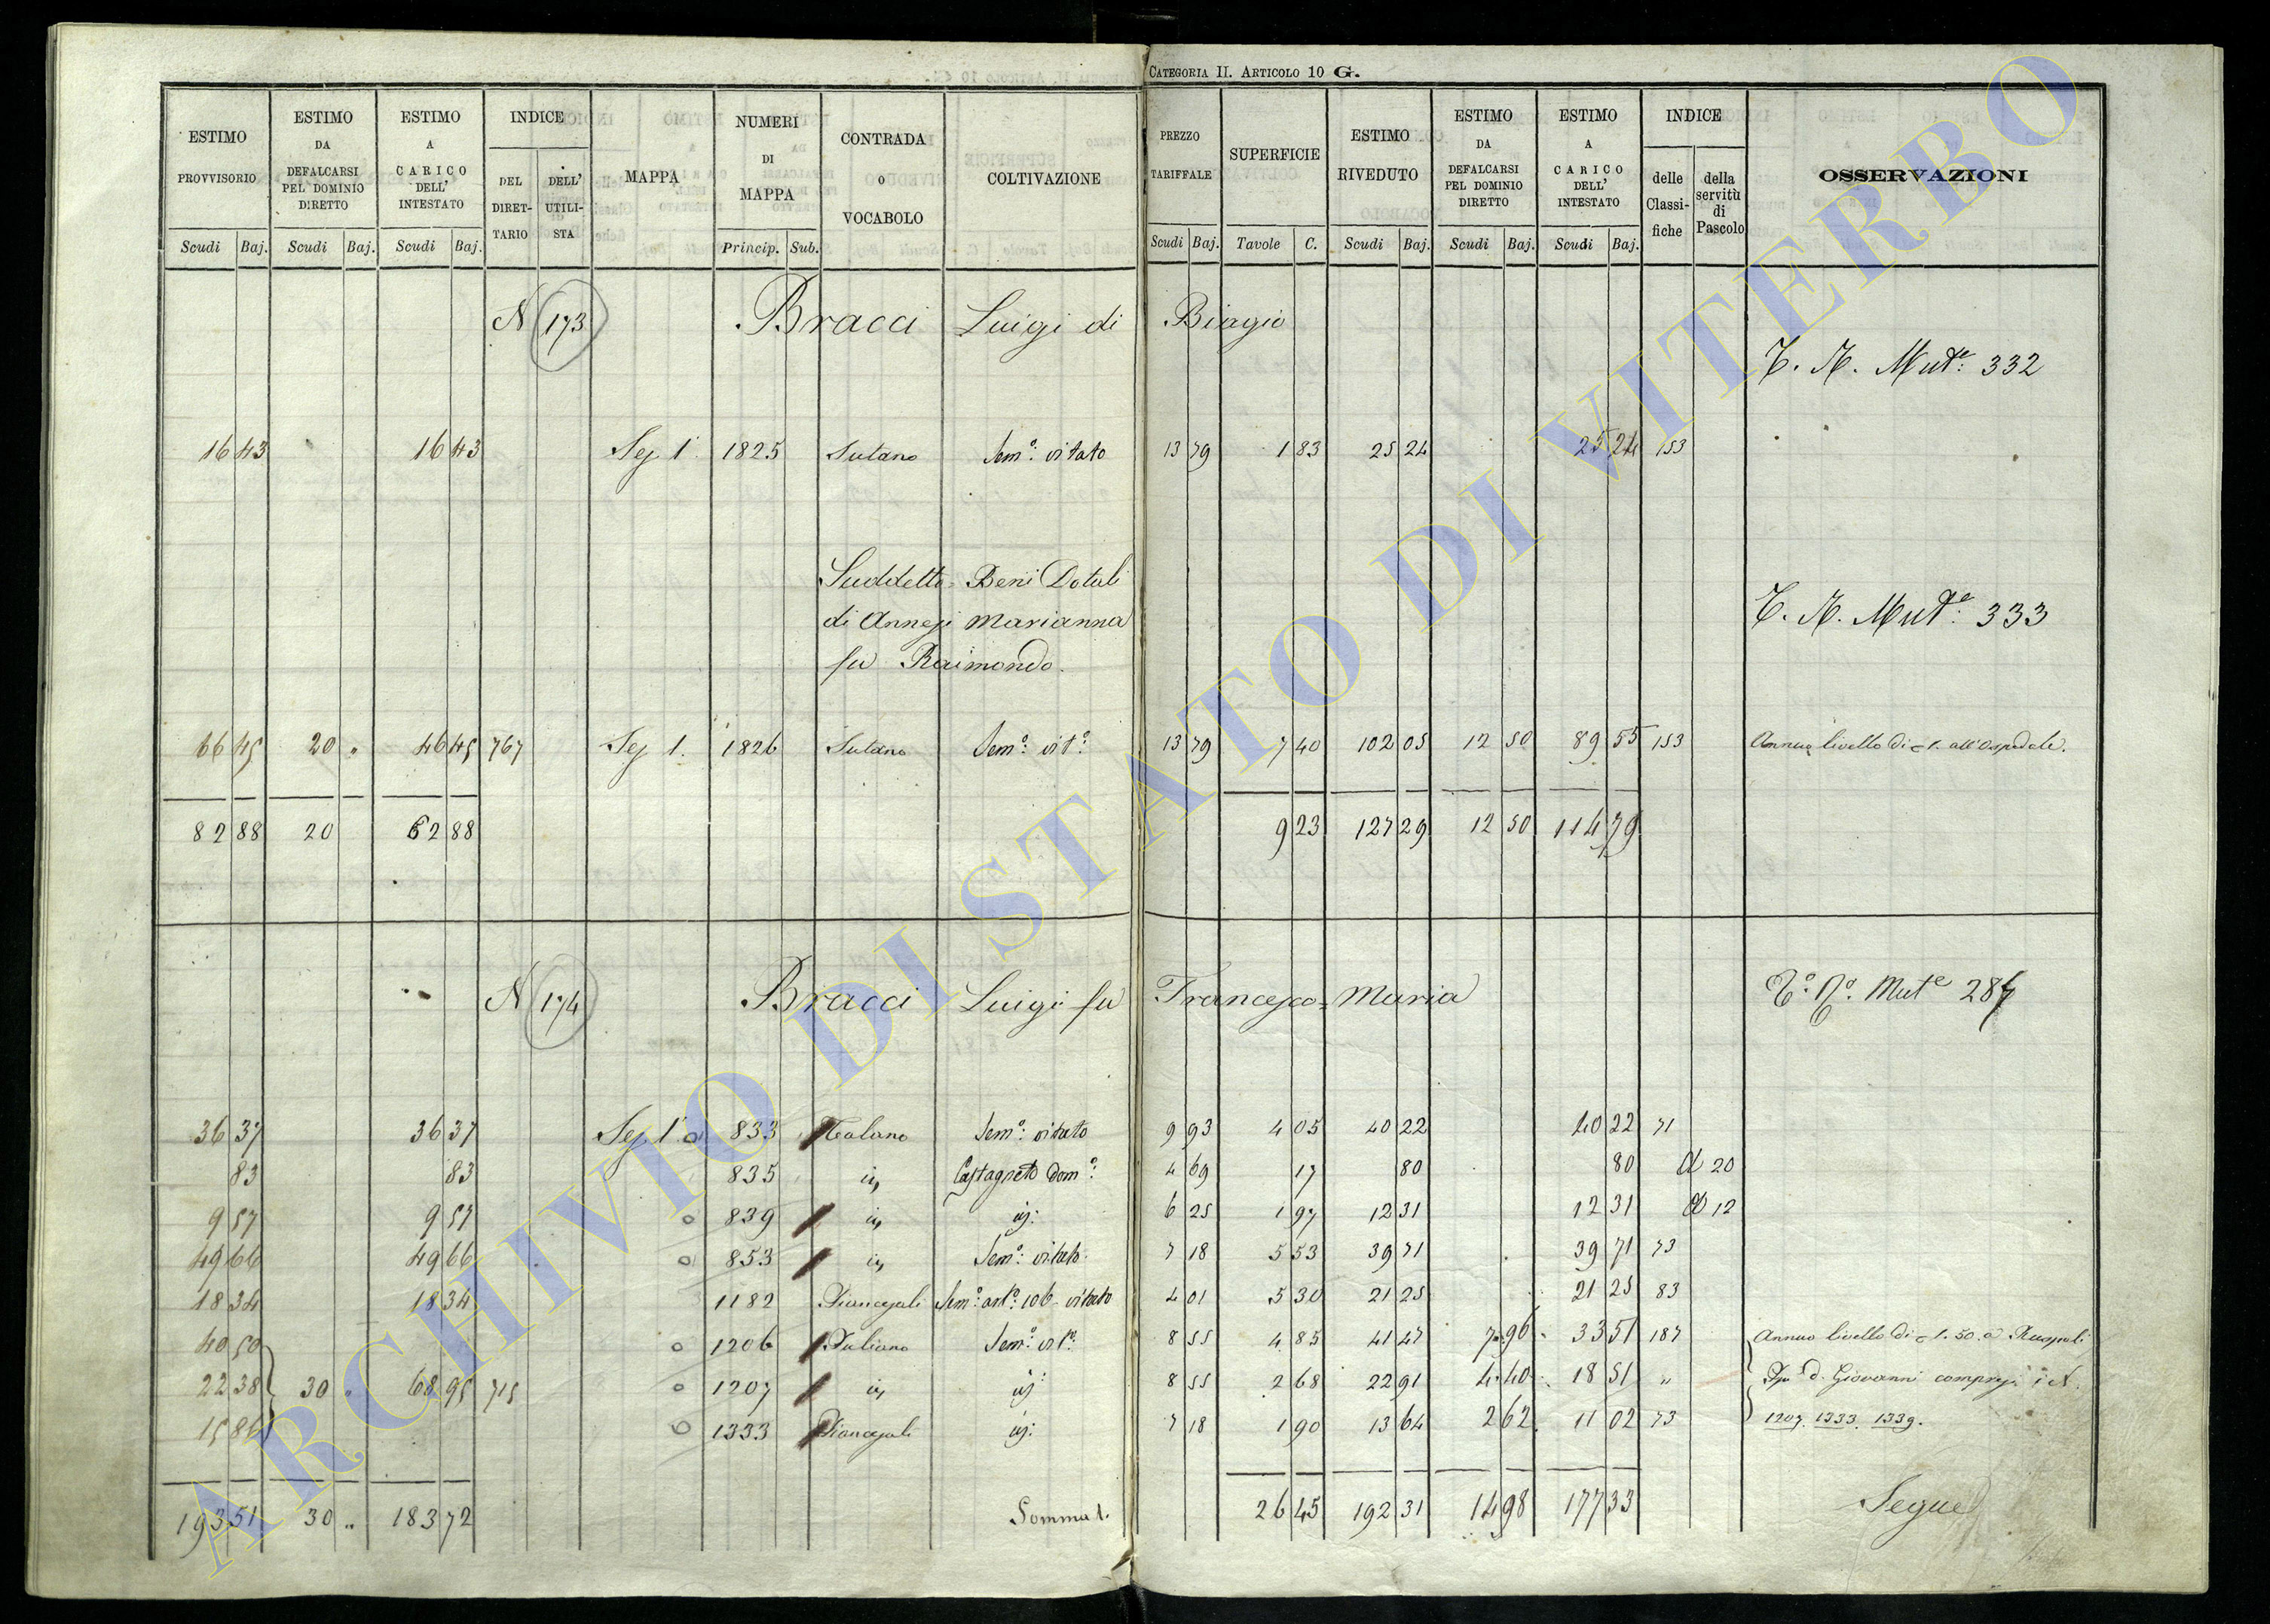 CATEGORIA II. ARTICOLO 10 G.
ESTIMO PROVVISORIO
ESTIMO DA DEFALCARSI PEL DOMINIO DIRETTO
ESTIMO A CARICO DELL' INTESTATO
INDICE
DEL DIRETTARIO
DELL' UTILISTA
MAPPA
NUMERI DI MAPPA
CONTRADA O VOCABOLO
COLTIVAZIONE
PREZZO TARIFFALE
SUPERFICIE
ESTIMO RIVEDUTO
ESTIMO DA DEFALCARSI PEL DOMINIO DIRETTO
ESTIMO A CARICO DELL' INTESTATO
INDICE
delle Classifiche
della servitù di Pascolo
OSSERVAZIONI
Scudi Baj. Scudi Baj. Scudi Baj. Princip. Sub. Scudi Baj. Tavole C. Scudi Baj. Scudi Baj. Scudi Baj.
N 173 Bracci Luigi di Biagio
T. N. Mut.e 332
16 43 16 43 Sez 1 1825 Sutano Sem.o vitato 13 79 1 83 25 24 25 24 153
Suddetto = Beni Dotali
di Annesi Marianna
fu Raimondo.
T. N. Mut.e 333
66 45 20 " 46 45 767 Sez 1. 1826 Sutano Sem.o vit.o 13 79 7 40 102 05 12 50 89 55 153 Annuo livello di 1. all'Ospedale.
82 88 20 62 88 9 23 127 29 12 50 114 79
N 174 Bracci Luigi fu Francesco = Maria
T.o N.o Mut.e 287
36 37 36 37 Sez 1 833 Talano Sem.o vitato 9 93 4 05 40 22 40 22 71
83 83 835 id, Castagneto dom.o 4 69 17 80 80 d 20
9 57 9 57 839 id, id: 6 25 1 97 12 31 12 31 d 12
49 66 49 66 853 id, Sem.o vitato 7 18 5 53 39 71 39 71 73
18 34 18 34 1182 Piancasali Sem.o art.o vitato 4 01 5 30 21 25 21 25 83
40 50 1206 Juliano Sem.o vit.o 8 55 4 85 41 47 7 96 33 51 187 Annuo livello di 1. 50. a Ruspoli
22 38 30 " 68 95 715 1207 id, id: 8 55 2 68 22 91 4 40 18 51 " d. Giovanni compresi i N.
15 86 1333 Piancasali id: 7 18 1 90 13 64 2 62 11 02 73 1207. 1333. 1339.
193 51 30 " 183 72 Somma 1. 26 45 192 31 14 98 177 33 Segue
ARCHIVIO DI STATO DI VITERBO